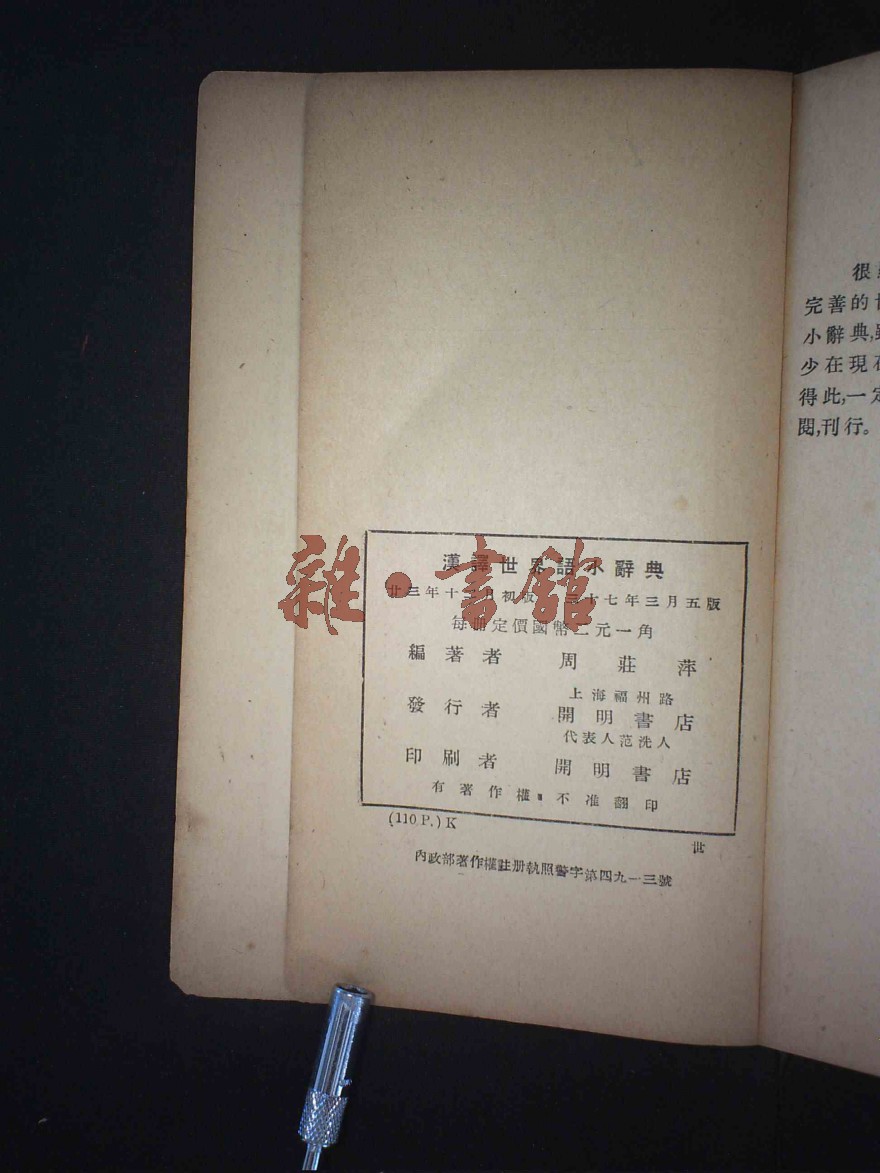 漢譯世界語小辭典
廿三年十二月初版 三十七年三月五版
每冊定價國幣二元一角
編著者 周莊萍
上海福州路
發行者 開明書店
代表人范洗人
印刷者 開明書店
有著作權 不准翻印
(110 P.) K
世
內政部著作權註册執照警字第四九一三號
很
完善的
小辭典,
少在現
得此,一定
閱,刊行。
雜·書館